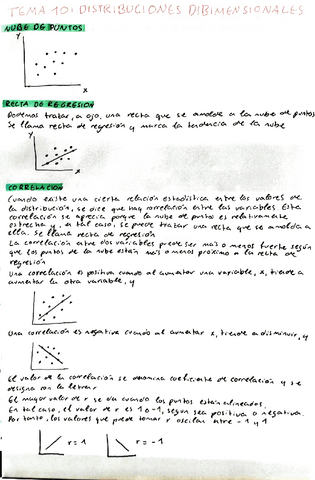 TEMA 10: DISTRIBUCIONES DIBIMENSIONALES
NUBE DE PUNTOS
Y
X
RECTA DE REGRESION
Podemos tratar, a ojo, una recta que se amolde a la nube de puntos
Se llama recta de regresión y marca la tendencia de la nube
Y
X
CORRELACION
Cuando existe una cierta relación estadística entre los valores de
la distribución, se dice que hay correlación entre las variables. Esta
correlación se aprecia porque la nube de punto es relativamente
estrecha y, en tal caso, se puede tratar una recta que se amolda a
ella. Se llama recta de regresión
La correlación entre dos variables puede ser más o menos fuerte según
que los puntos de la nube estén más o menos próximo a la recta de
regresión
Una correlación es positiva cuando al aumentar una variable, x, tiende a
aumentar la otra variable, y
Una correlación es negativa cuando al aumentar x, tiende a disminuir, y
El valor de la correlación se denomina coeficiente de correlación y se
designa con la letra r
El mayor valor de r se da cuando los puntos están alineados
En tal caso, el valor de r es 1 o -1, según sea positiva o negativa.
Por tanto, los valores que puede tomar r oscilan entre -1 y 1
r = 1
r = -1